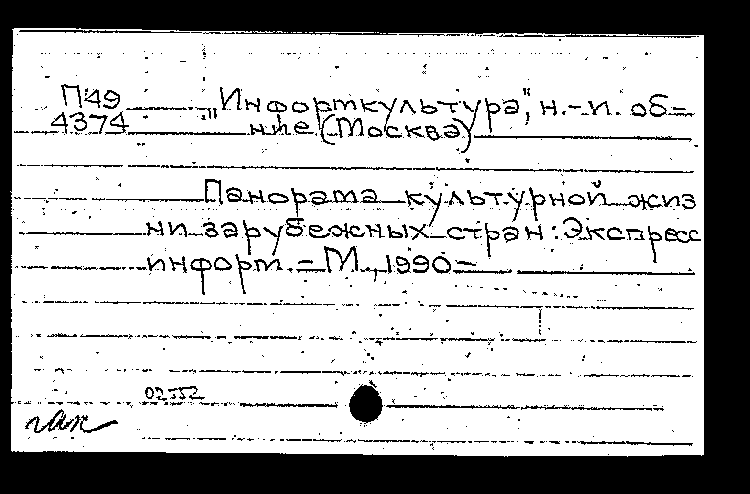 П49
4374
"Информкультура", н.-и. об-
ние (Москва)
Панорама культурной жиз
ни зарубежных стран: Экспресс
информ. – М., 1990 –
02552